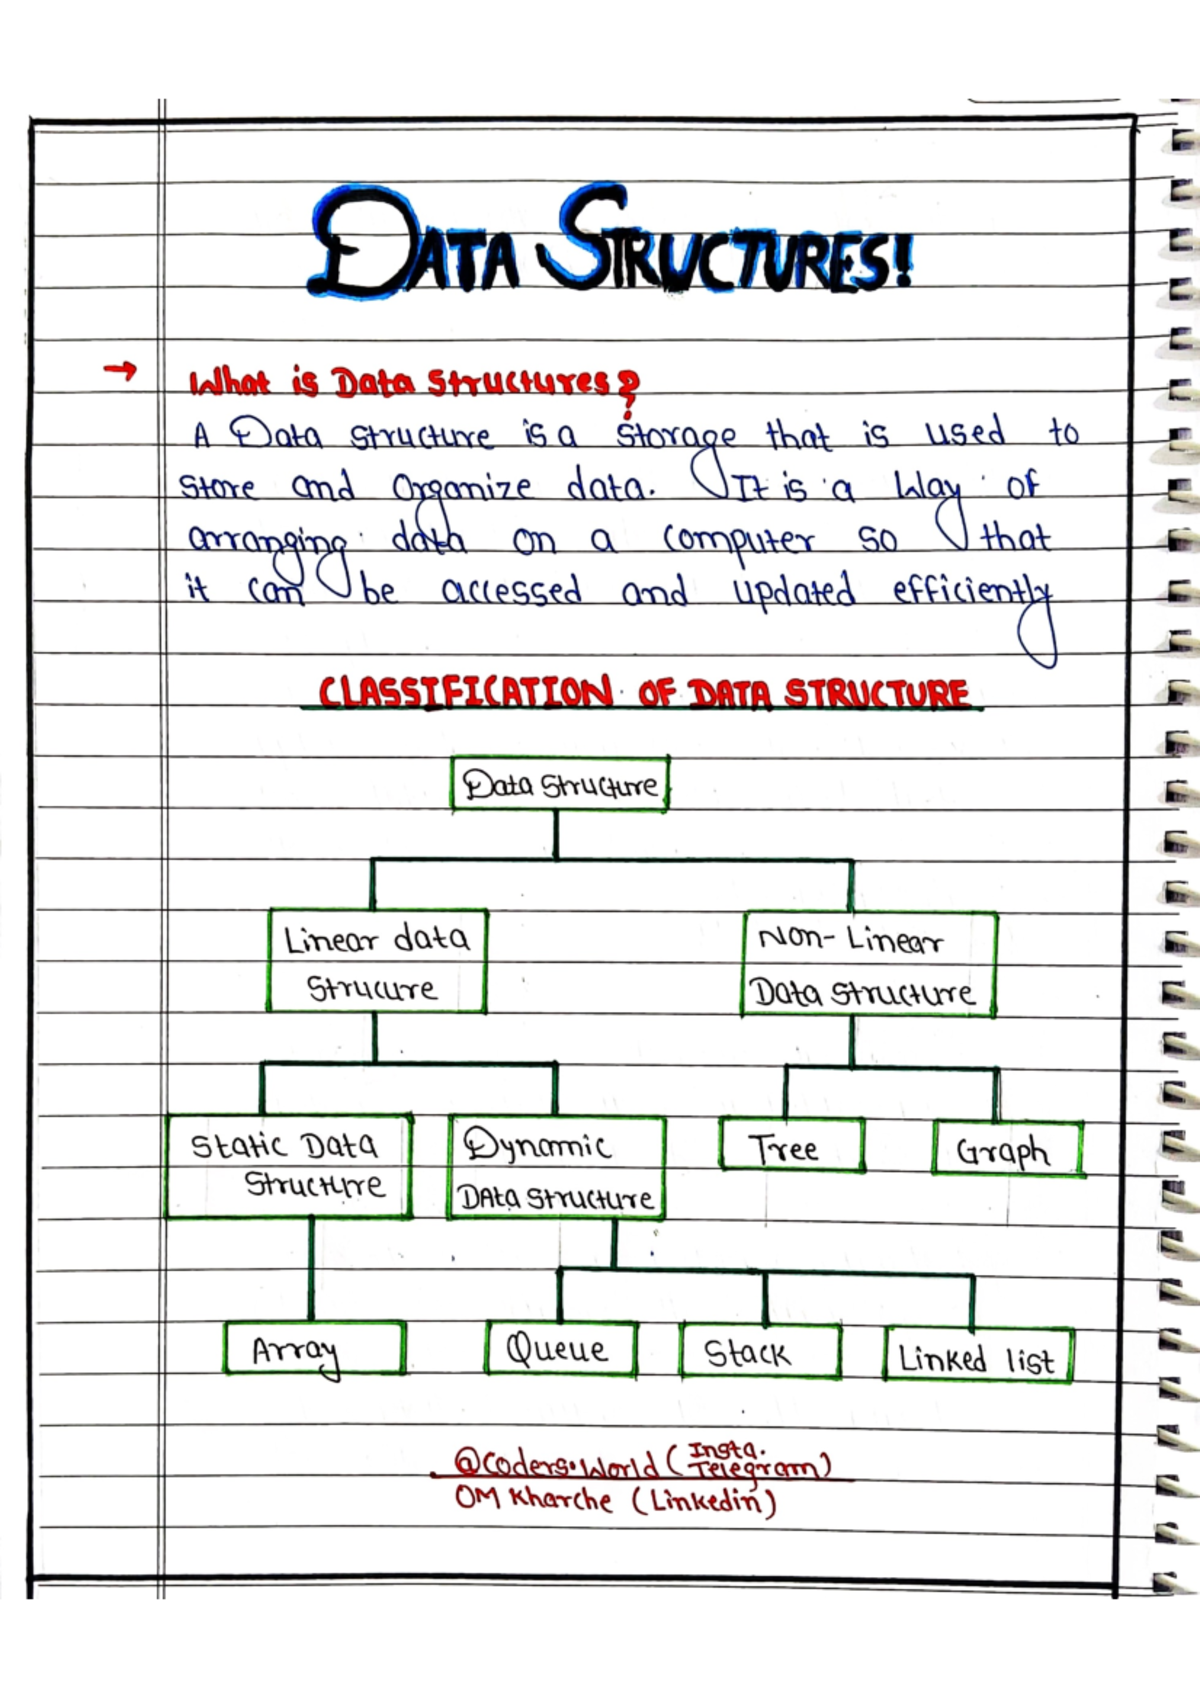 DATA STRUCTURES!
→ What is Data Structures?
A Data structure is a storage that is used to
store and organize data. It is a Way of
arranging data on a computer so that
it can be accessed and updated efficiently
CLASSIFICATION OF DATA STRUCTURE
Data Structure
Linear data
Strucure
Non-Linear
Data Structure
Static Data
Structure
Dynamic
DAta Structure
Tree
Graph
Array
Queue
Stack
Linked list
@Coders.World (Insta.
Telegram)
OM Kharche (Linkedin)